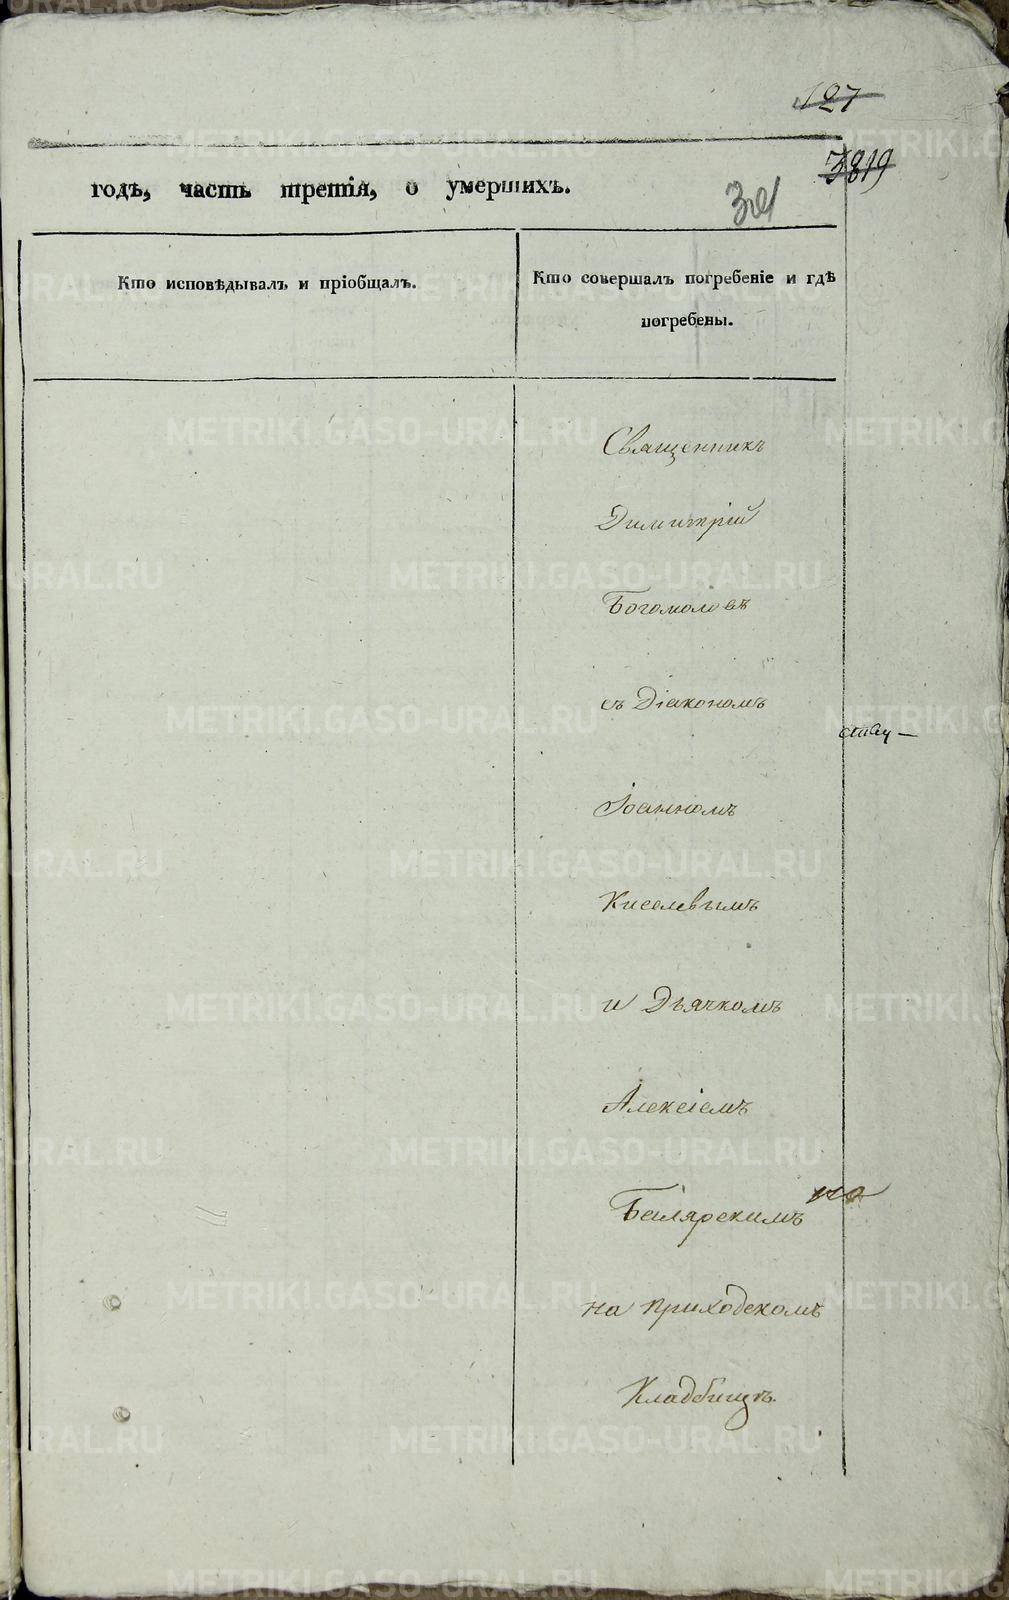 127
3819
годѣ, часть третія, о умершихъ.
Кто исповѣдывалъ и пріобщалъ.
Кто совершалъ погребеніе и гдѣ
погребены.
Священникъ
Димитрій
Богомоловъ
съ Діакономъ
Іоанномъ
Киселевымъ
и Дьячкомъ
Алексіемъ
Билярскимъ
на приходскомъ
Кладбищѣ.
METRIKI.GASO-URAL.RU